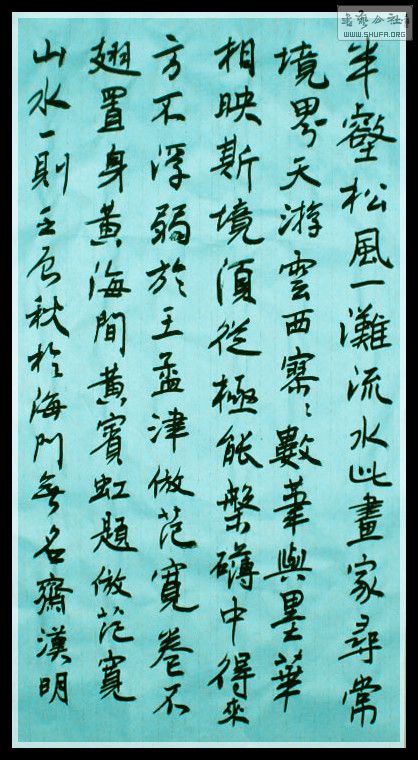 半壑松風一灘流水此畫家尋常
境界天游雲西寥〻數筆與墨華
相映斯境須從極能槃礴中得來
方不浮弱於王孟津倣范寬卷不
翅置身黃海間黃賓虹題倣范寬
山水一則壬辰秋於海門無名齋漢明
WWW.SHUFA.ORG